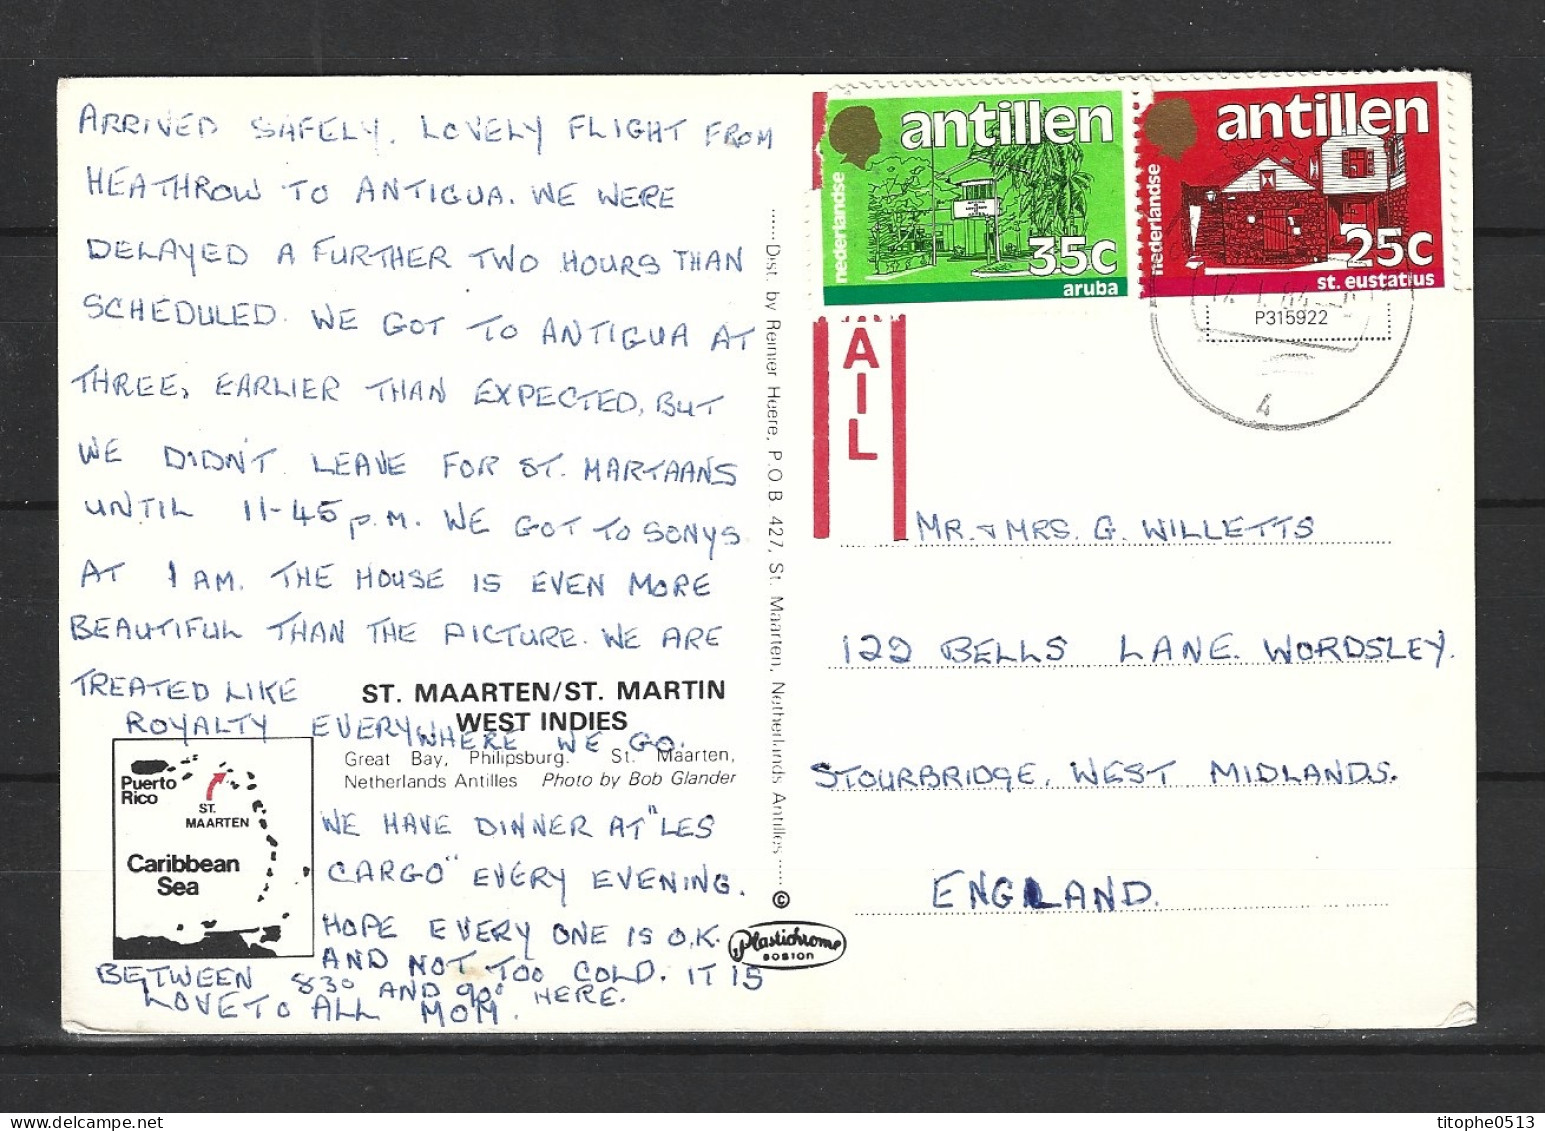 ARRIVED SAFELY. LOVELY FLIGHT FROM
HEATHROW TO ANTIGUA. WE WERE
DELAYED A FURTHER TWO HOURS THAN
SCHEDULED. WE GOT TO ANTIGUA AT
THREE, EARLIER THAN EXPECTED, BUT
WE DIDN'T LEAVE FOR ST. MARTAANS
UNTIL 11-45 P.M. WE GOT TO SONYS
AT 1 AM. THE HOUSE IS EVEN MORE
BEAUTIFUL THAN THE PICTURE. WE ARE
TREATED LIKE
ROYALTY EVERYWHERE WE GO.
WE HAVE DINNER AT "LES
CARGO" EVERY EVENING.
HOPE EVERY ONE IS O.K.
AND NOT TOO COLD. IT IS
BETWEEN 83° AND 90° HERE.
LOVE TO ALL MOM.
ST. MAARTEN/ST. MARTIN
WEST INDIES
Great Bay, Philipsburg. St. Maarten,
Netherlands Antilles Photo by Bob Glander
Puerto
Rico
ST.
MAARTEN
Caribbean
Sea
Dist. by Reinier Huere, P.O.B. 427, St. Maarten, Netherlands Antilles
©
Plastichrome
BOSTON
antillen
nederlandse
35c
aruba
antillen
nederlandse
25c
st. eustatius
P315922
4
AIL
MR. & MRS. G. WILLETTS
122 BELLS LANE. WORDSLEY.
STOURBRIDGE. WEST MIDLANDS.
ENGLAND.
titophe0513